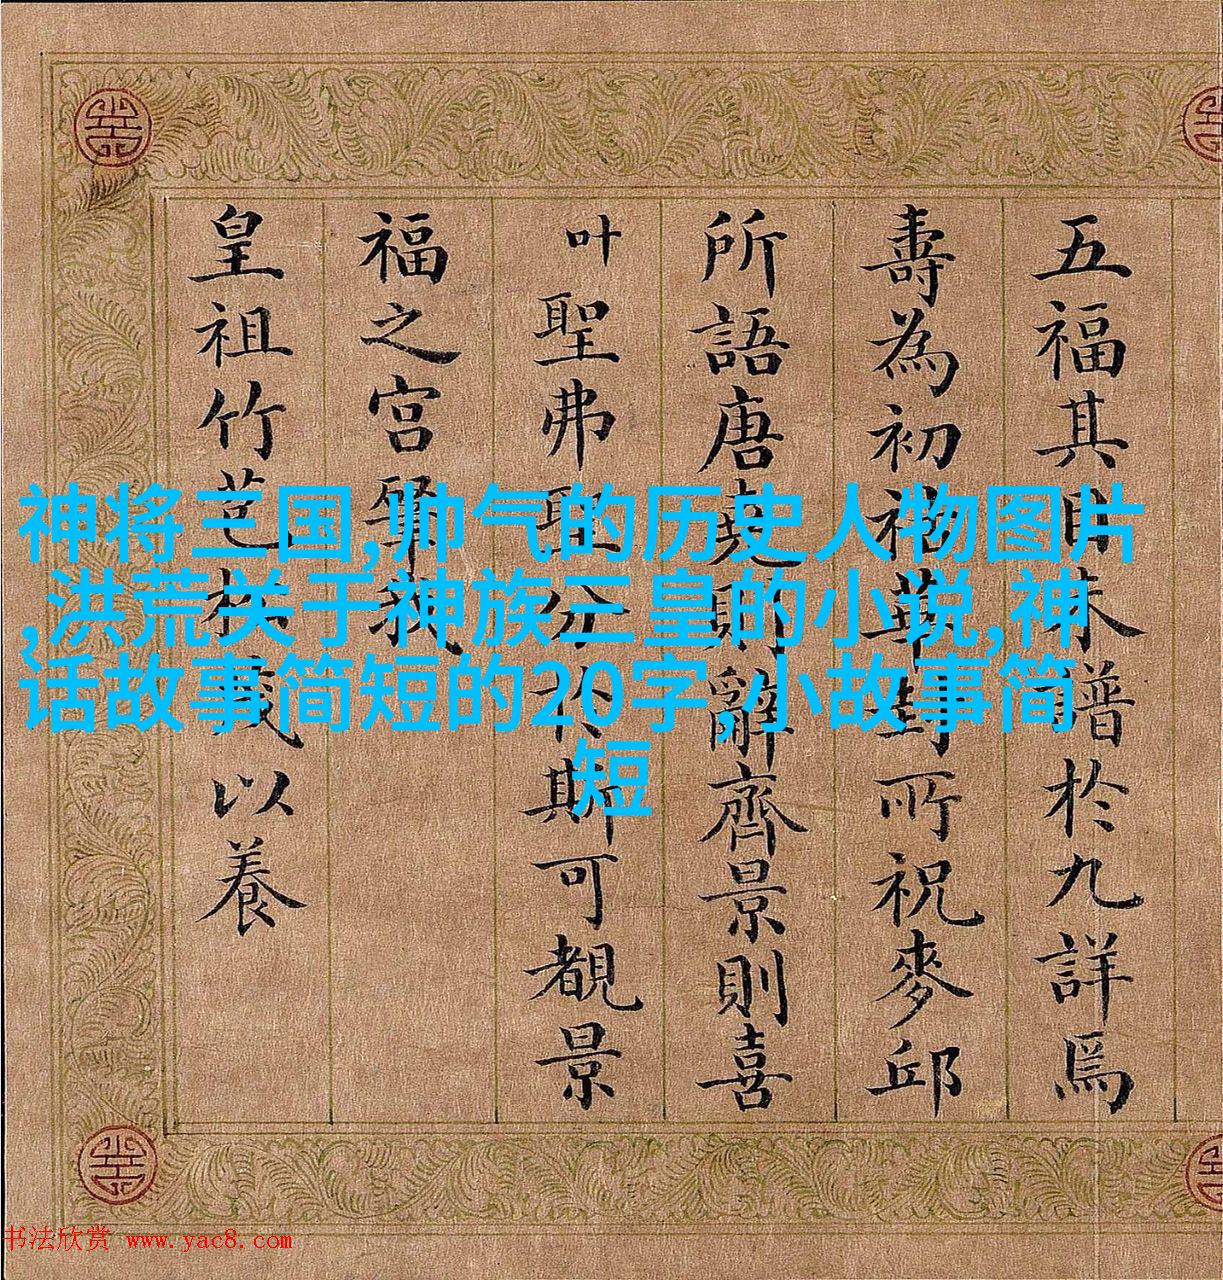 五福其目未譜於九詳焉
壽為初祉華封所祝麥邱
所語唐堯則辭齊景則喜
叶聖弗聖分於斯可覩景
福之宮肇我
皇祖竹苞松茂以養
神将三国,帅气的历史人物图片
,洪荒关于神族三皇的小说,神
话故事简短的20字,小故事简
短
书法欣赏 www.yac8.com